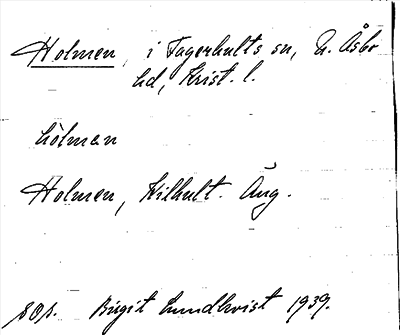 Holmen, i Fagerhults sn, N. Åsbo
hd, Krist. l.
hòlman
Holmen, Kilhult. Äng.
sOp. Birgit Lundkvist 1939.